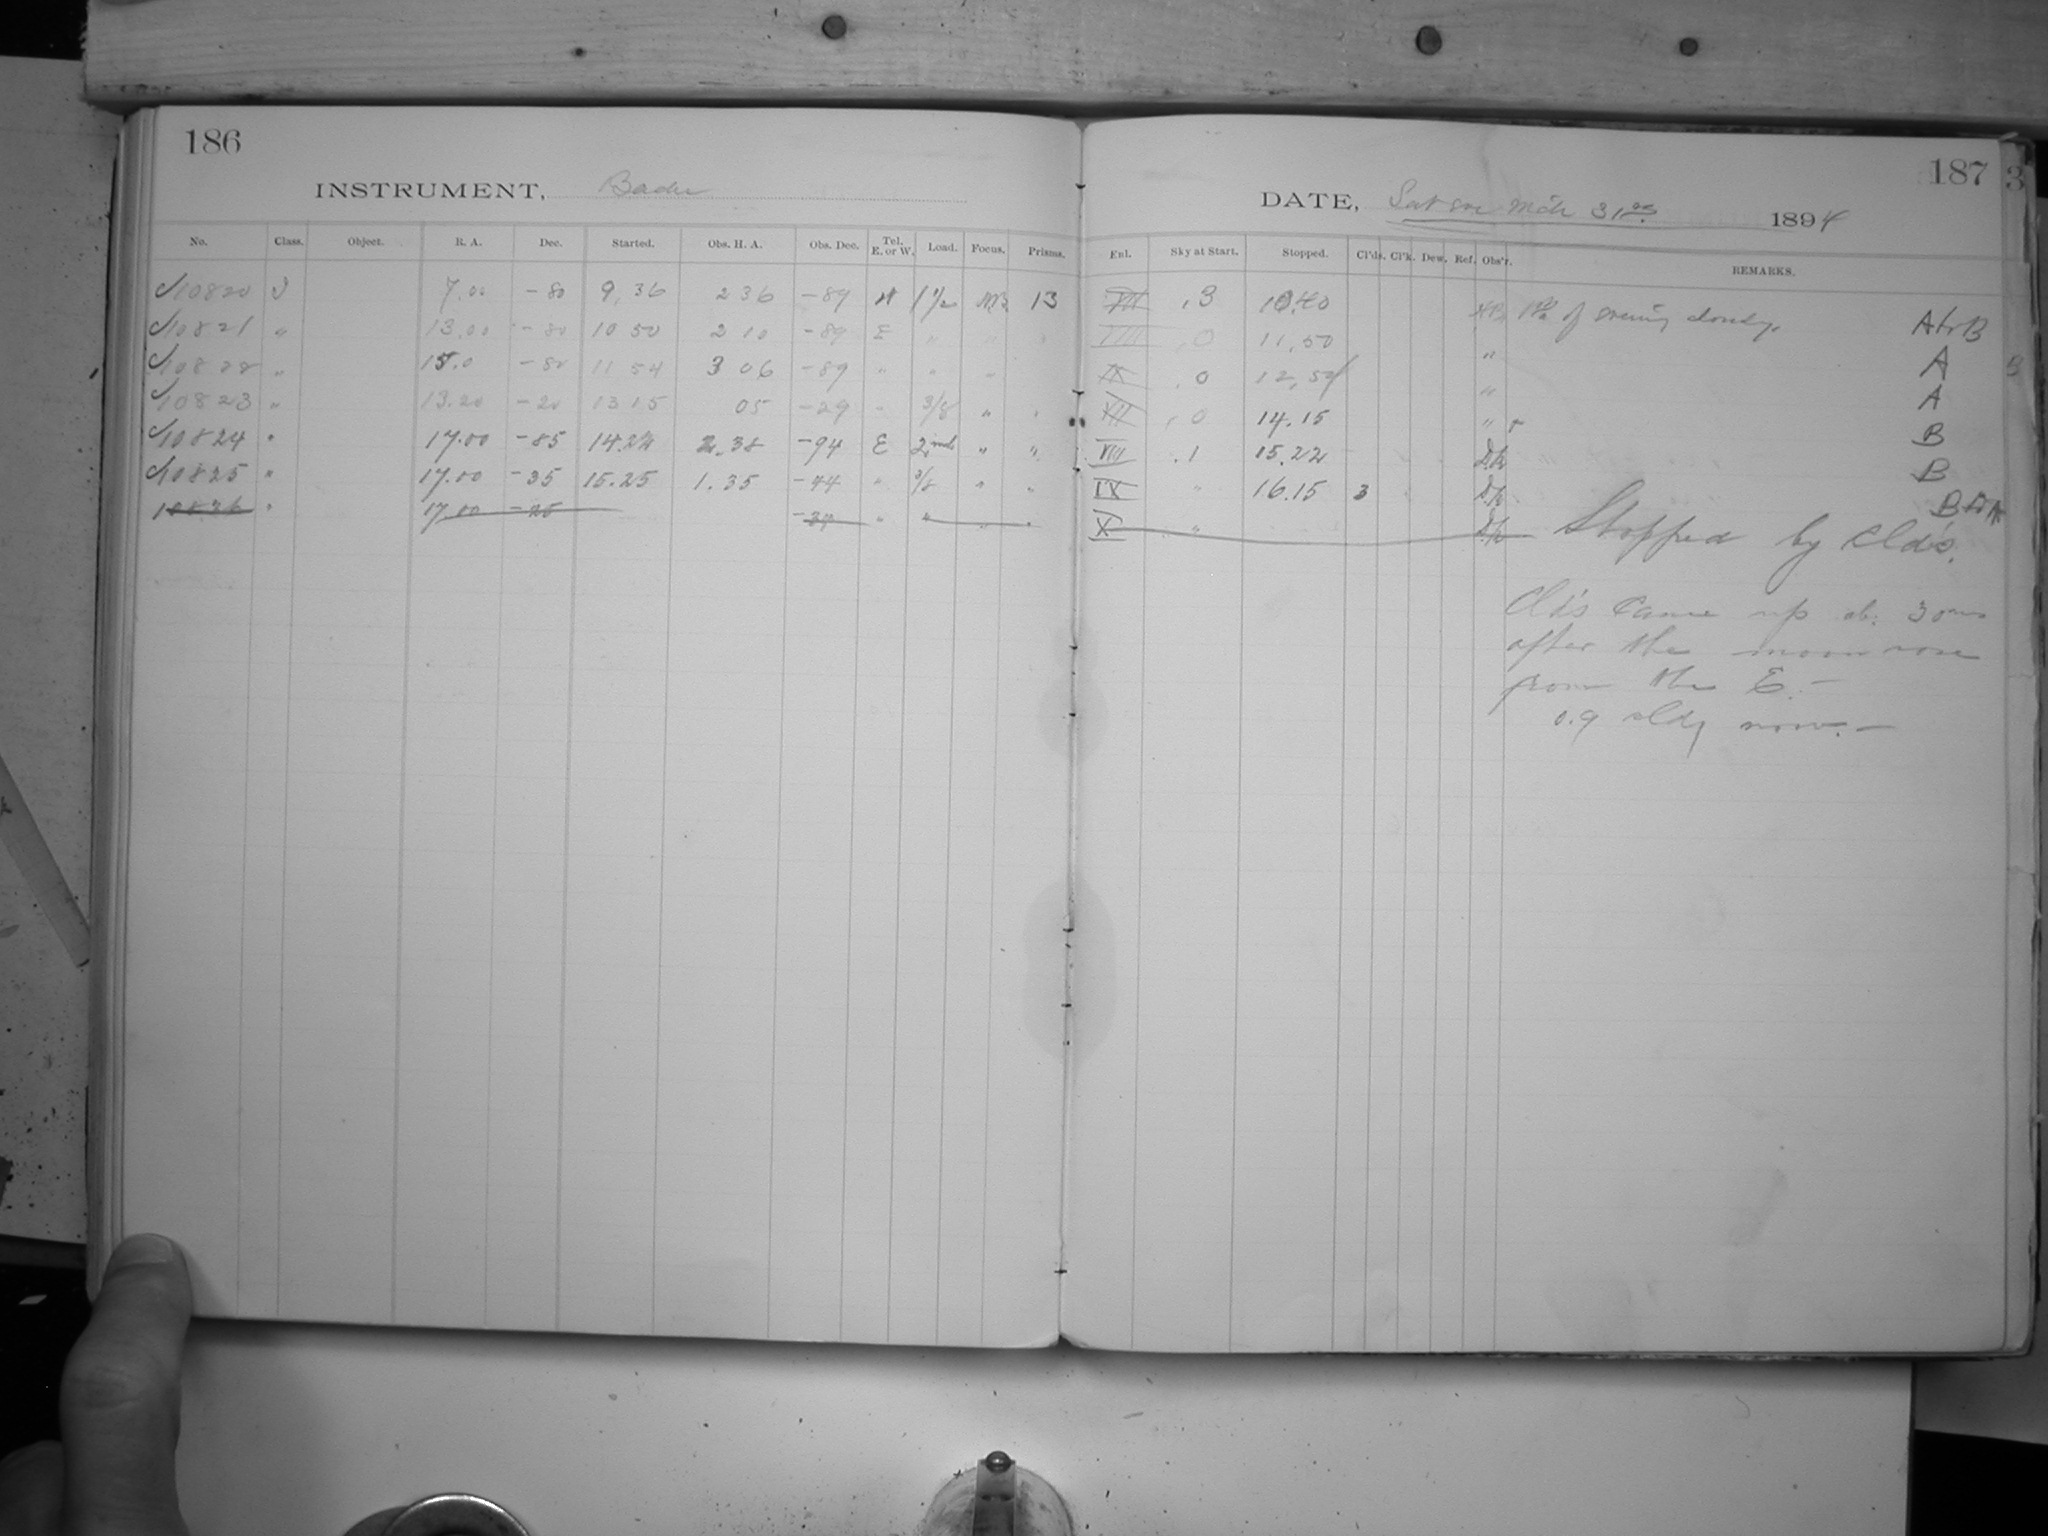 186
INSTRUMENT, Bache
No. Class. Object. R. A. Dec. Started. Obs. H. A. Obs. Dec. Tel. E. or W. Load. Focus. Prisms.
10820 7.00 -80 9,36 2 36 -89 1 1/2 13
10821 " 13.00 -80 10 50 2 10 -89 E " " "
10822 " 15.0 -80 11 54 3 06 -89 " " "
10823 " 13.20 -20 13 15 05 -29 " 3/8 " "
10824 " 17.00 -85 14.22 2.38 -94 E 2 " "
10825 " 17.00 -35 15.25 1.35 -44 " 3/8 " "
10826 " 17.00 -25 -34 " " " "
187
DATE, Sat eve Mch 31st 1894
Enl. Sky at Start. Stopped. Cl'ds. Cl'k. Dew. Ref. Obs'r. REMARKS.
VII .3 10.40 of evening cloudy. A to B
VIII .0 11.50 " A
IX .0 12,54 " A
XII .0 14.15 " B
VIII .1 15.22 B
IX " 16.15 3 B to A
X " Stopped by Cld's.
Cld's came up ab. 30ms
after the moon rose
from the E.—
0.9 cldy now.—
3